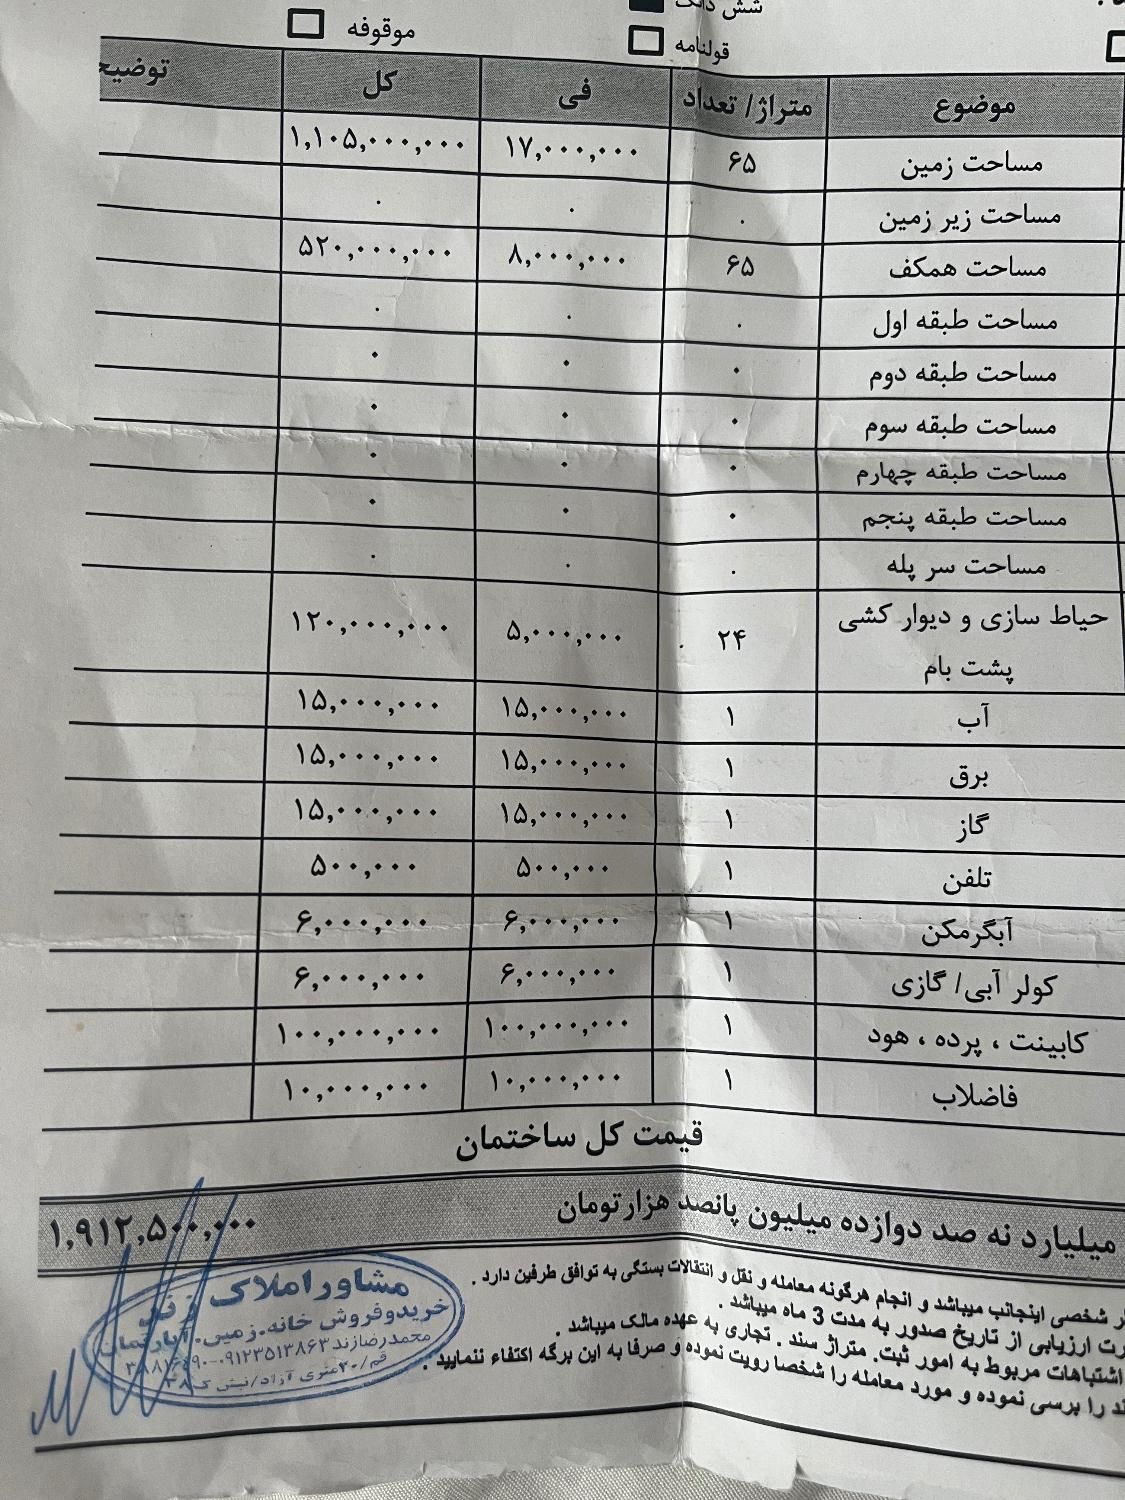 شش دانگ
قولنامه موقوفه
موضوع متراژ/ تعداد فی کل توضیح
مساحت زمین ۶۵ ۱۷,۰۰۰,۰۰۰ ۱,۱۰۵,۰۰۰,۰۰۰
مساحت زیر زمین ۰ ۰ ۰
مساحت همکف ۶۵ ۸,۰۰۰,۰۰۰ ۵۲۰,۰۰۰,۰۰۰
مساحت طبقه اول ۰ ۰ ۰
مساحت طبقه دوم ۰ ۰ ۰
مساحت طبقه سوم ۰ ۰ ۰
مساحت طبقه چهارم ۰ ۰ ۰
مساحت طبقه پنجم ۰ ۰ ۰
مساحت سر پله ۰ ۰ ۰
حیاط سازی و دیوار کشی
پشت بام ۲۴ ۵,۰۰۰,۰۰۰ ۱۲۰,۰۰۰,۰۰۰
آب ۱ ۱۵,۰۰۰,۰۰۰ ۱۵,۰۰۰,۰۰۰
برق ۱ ۱۵,۰۰۰,۰۰۰ ۱۵,۰۰۰,۰۰۰
گاز ۱ ۱۵,۰۰۰,۰۰۰ ۱۵,۰۰۰,۰۰۰
تلفن ۱ ۵۰۰,۰۰۰ ۵۰۰,۰۰۰
آبگرمکن ۱ ۶,۰۰۰,۰۰۰ ۶,۰۰۰,۰۰۰
کولر آبی/ گازی ۱ ۶,۰۰۰,۰۰۰ ۶,۰۰۰,۰۰۰
کابینت ، پرده ، هود ۱ ۱۰۰,۰۰۰,۰۰۰ ۱۰۰,۰۰۰,۰۰۰
فاضلاب ۱ ۱۰,۰۰۰,۰۰۰ ۱۰,۰۰۰,۰۰۰
قیمت کل ساختمان
میلیارد نه صد دوازده میلیون پانصد هزارتومان ۱,۹۱۲,۵۰۰,۰۰۰
شخصی اینجانب میباشد و انجام هرگونه معامله و نقل و انتقالات بستگی به توافق طرفین دارد .
ارزیابی از تاریخ صدور به مدت 3 ماه میباشد .
اشتباهات مربوط به امور ثبت. متراژ سند . تجاری به عهده مالک میباشد .
را برسی نموده و مورد معامله را شخصا رویت نموده و صرفا به این برگه اکتفاء ننمایید .
مشاور املاک زند
خریدوفروش خانه.زمین.آپارتمان
محمدرضازند ۰۹۱۲۳۵۱۳۸۶۳
قم/۲۰متری آزاد/نبش ک ۳۸